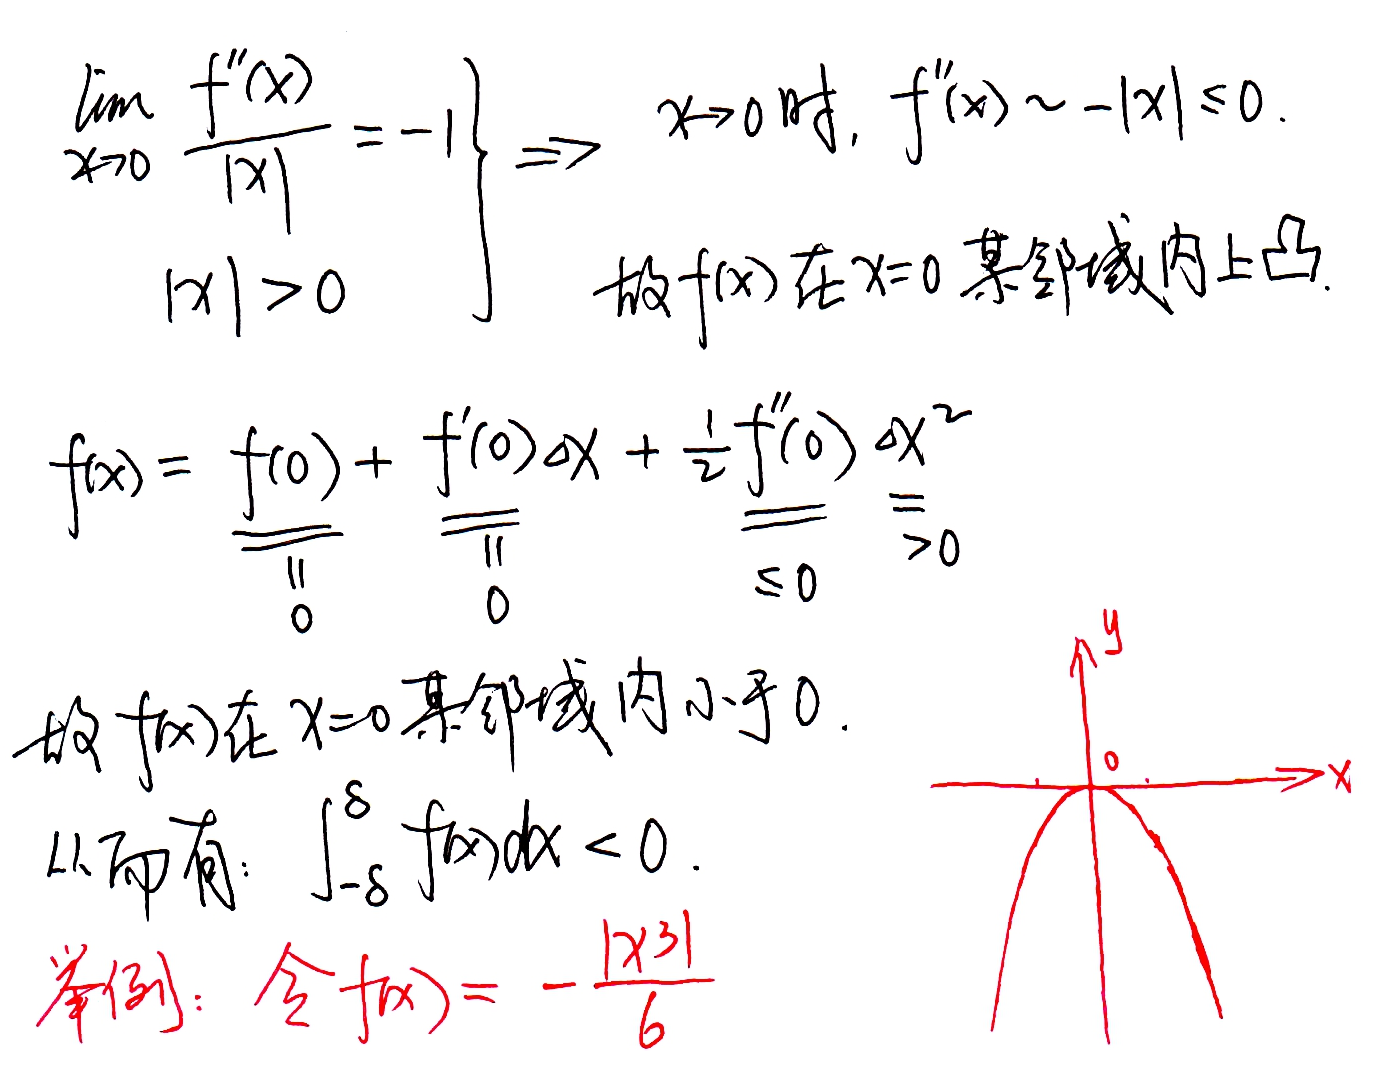 lim_{x→0} f''(x)/|x| = -1 } ⇒ x→0时, f''(x) ~ -|x| ≤ 0.
|x| > 0 故f(x)在x=0某邻域内上凸.
f(x) = f(0) + f'(0)Δx + 1/2 f''(0) Δx²
= 0 = 0 ≤ 0 > 0
故f(x)在x=0某邻域内小于0.
从而有: ∫_{-δ}^{δ} f(x)dx < 0.
举例: 令f(x) = - |x³|/6
y
0
x